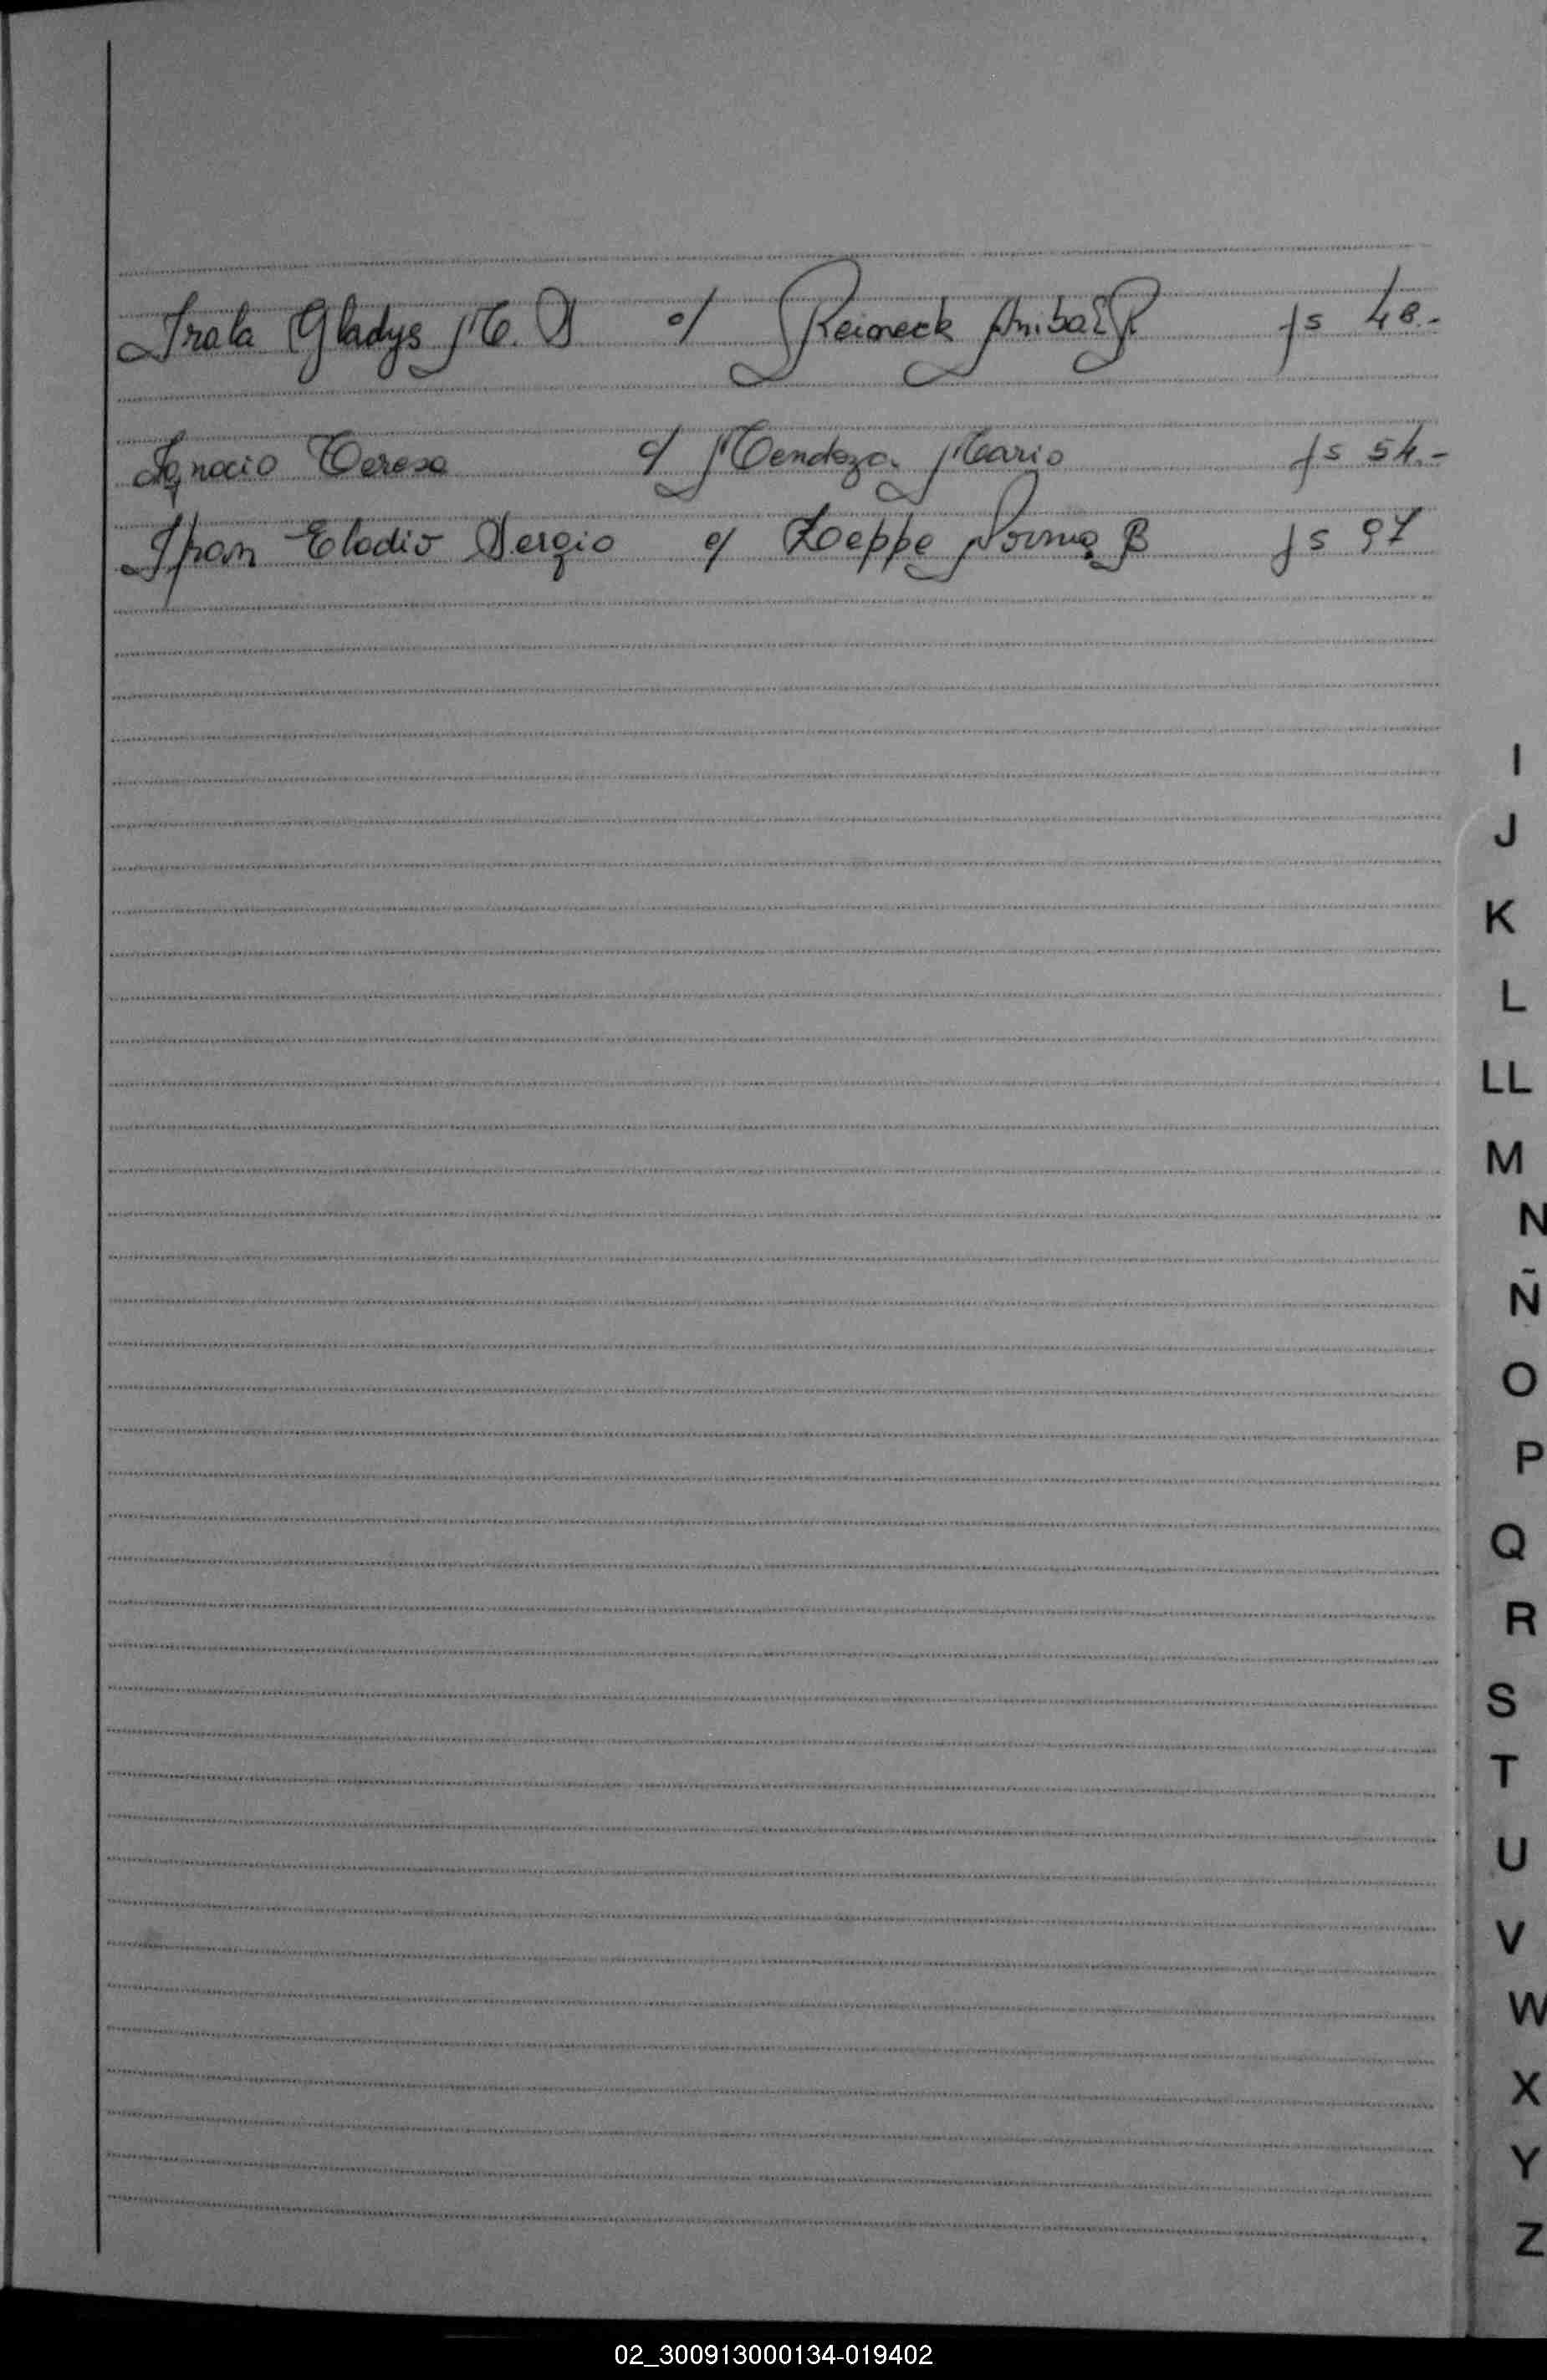 Irala Gladys M. S c/ Reineck Anibal R fs 48.-
Ignacio Teresa c/ Mendoza Mario fs 54.-
Elodio Sergio c/ Norma B fs 97
I
J
K
L
LL
M
N
Ñ
O
P
Q
R
S
T
U
V
W
X
Y
Z
02_300913000134-019402